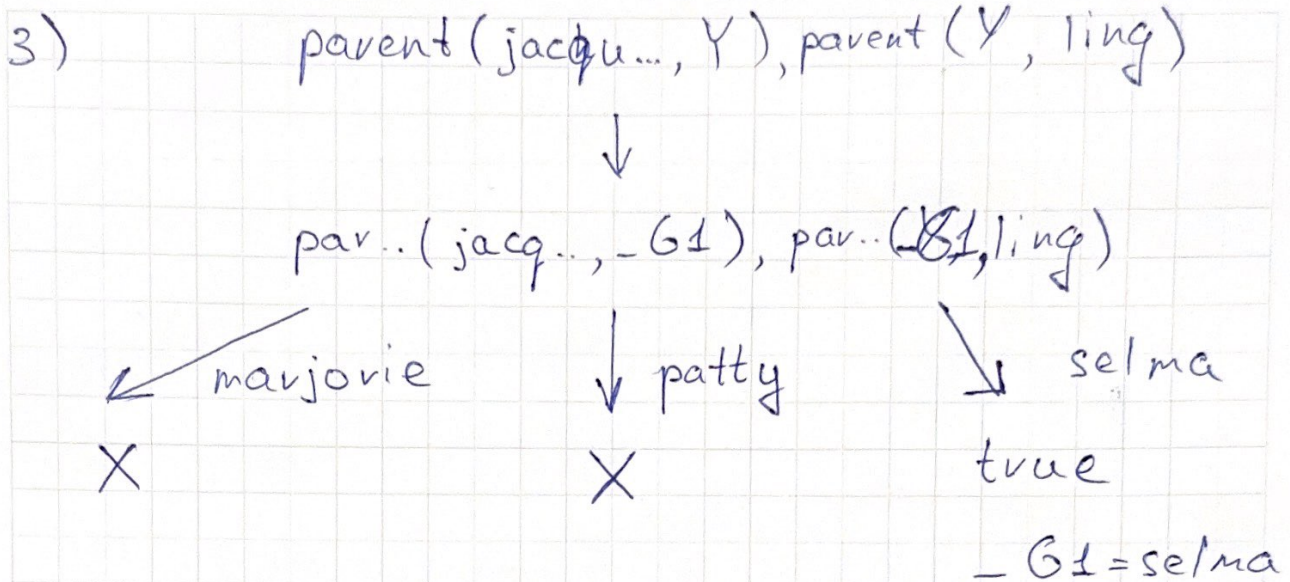 3) parent(jacqu..., Y), parent(Y, ling)
par..(jacq.., _G1), par..(_G1, ling)
marjorie patty selma
X X true
_G1 = selma